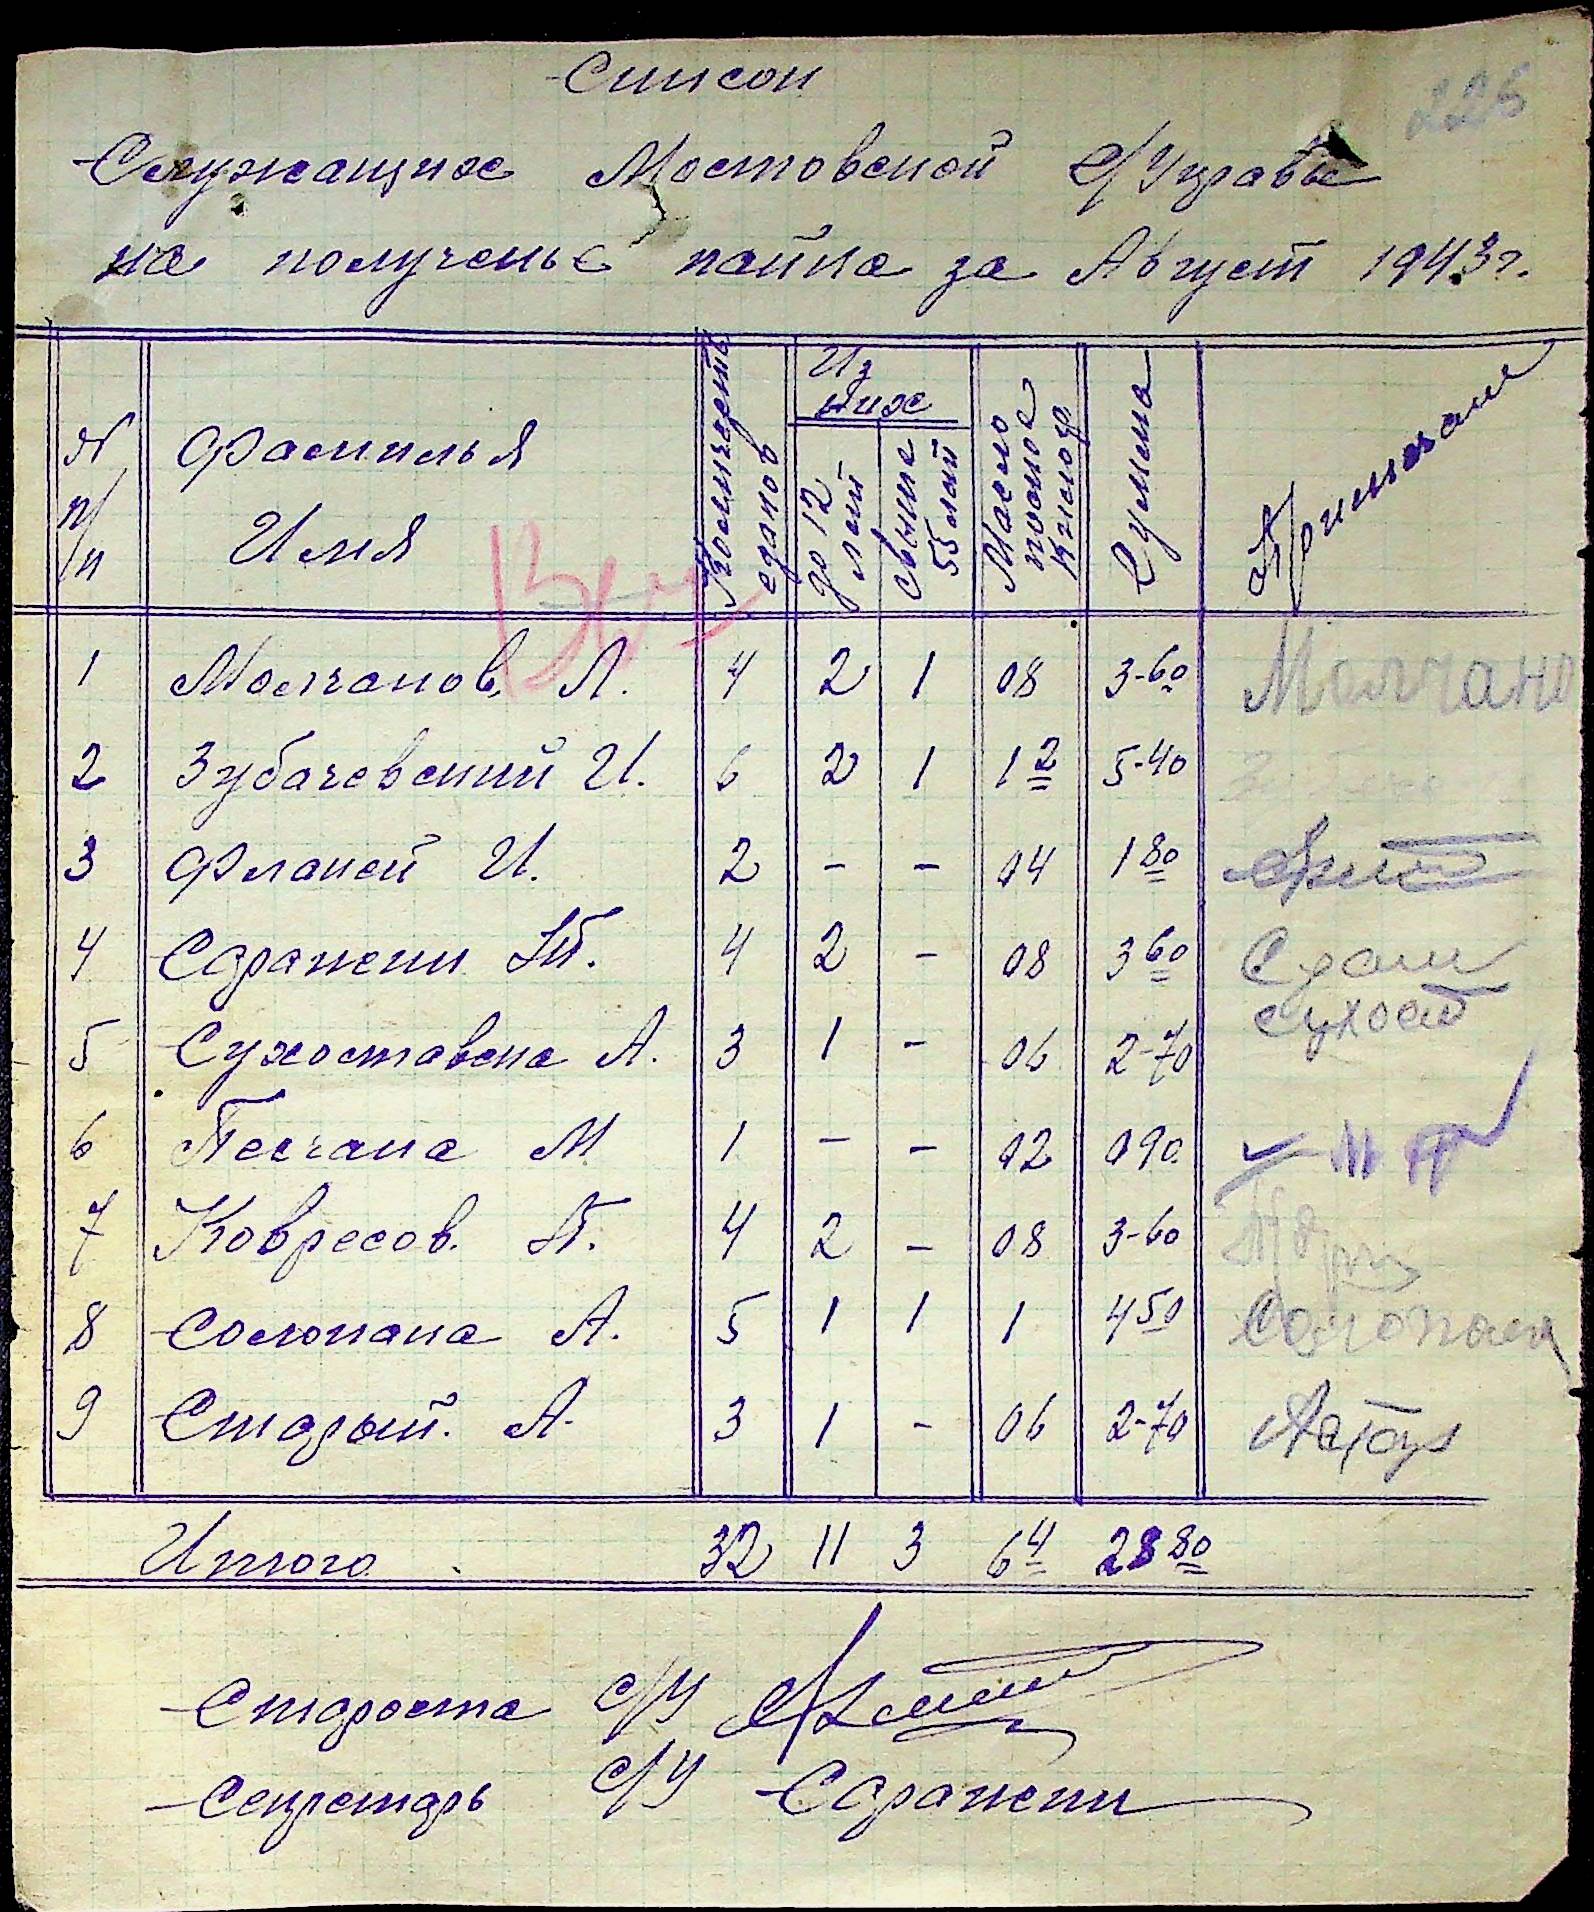 Список
226
Служащих Мостовской с/Управы
на полученье пайка за Август 1943 г.
N п/п Фамилья Имя Количество едаков Из них до 12 лет свыше 55 лет Масло посное килогр Сумма Примечани
1 Молчанов Л. 4 2 1 08 3-60 Молчано
2 Зубачевский И. 6 2 1 1 2 5-40
3 Фланей И. 2 - - 04 1 80
4 Сдражени П. 4 2 - 08 3 60
5 Сухоставска А. 3 1 - 06 2-70 Сухост
6 Песчана М 1 - - 02 090
7 Ковресов. П. 4 2 - 08 3-60
8 Солопана А. 5 1 1 1 4 50 Солопана
9 Старый. А. 3 1 - 06 2-70
Итого 32 11 3 6 4 28 80
Староста с/У
Секретарь с/У Сдражени